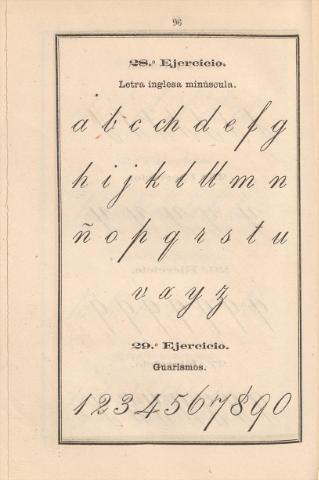 96
28.ª Ejercicio.
Letra inglesa minúscula.
a b c ch d e f g
h i j k l ll m n
ñ o p q r s t u
v x y z
29.ª Ejercicio.
Guarismos.
1 2 3 4 5 6 7 8 9 0